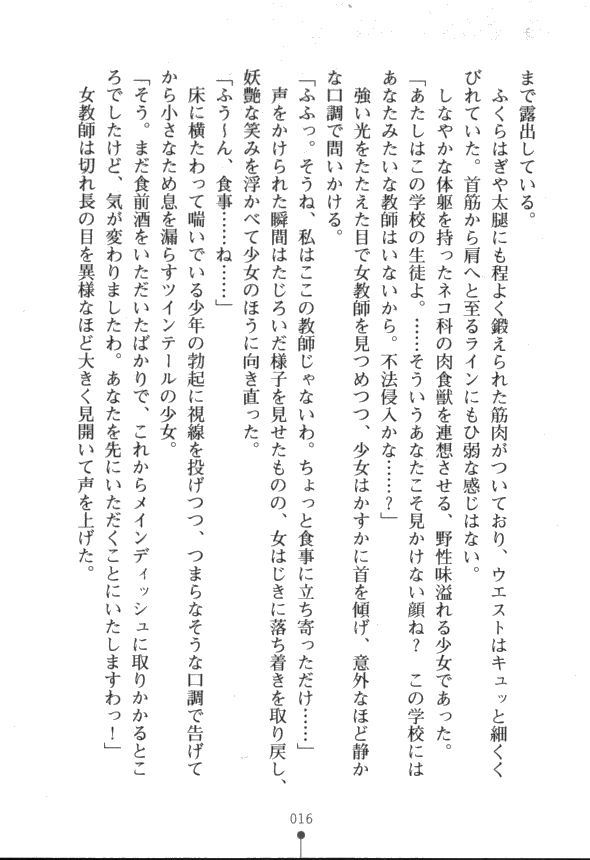 まで露出している。
ふくらはぎや太腿にも程よく鍛えられた筋肉がついており、ウエストはキュッと細くく
びれていた。首筋から肩へと至るラインにもひ弱な感じはない。
しなやかな体躯を持ったネコ科の肉食獣を連想させる、野性味溢れる少女であった。
「あたしはこの学校の生徒よ。……そういうあなたこそ見かけない顔ね？　この学校には
あなたみたいな教師はいないから。不法侵入かな……？」
強い光をたたえた目で女教師を見つめつつ、少女はかすかに首を傾げ、意外なほど静か
な口調で問いかける。
「ふふっ。そうね、私はここの教師じゃないわ。ちょっと食事に立ち寄っただけ……」
声をかけられた瞬間はたじろいだ様子を見せたものの、女はじきに落ち着きを取り戻し、
妖艶な笑みを浮かべて少女のほうに向き直った。
「ふう～ん、食事……ね……」
から小さなため息を漏らすツインテールの少女。
「そう。まだ食前酒をいただいたばかりで、これからメインディッシュに取りかかるとこ
ろでしたけど、気が変わりましたわ。あなたを先にいただくことにいたしますわっ！」
女教師は切れ長の目を異様なほど大きく見開いて声を上げた。
016